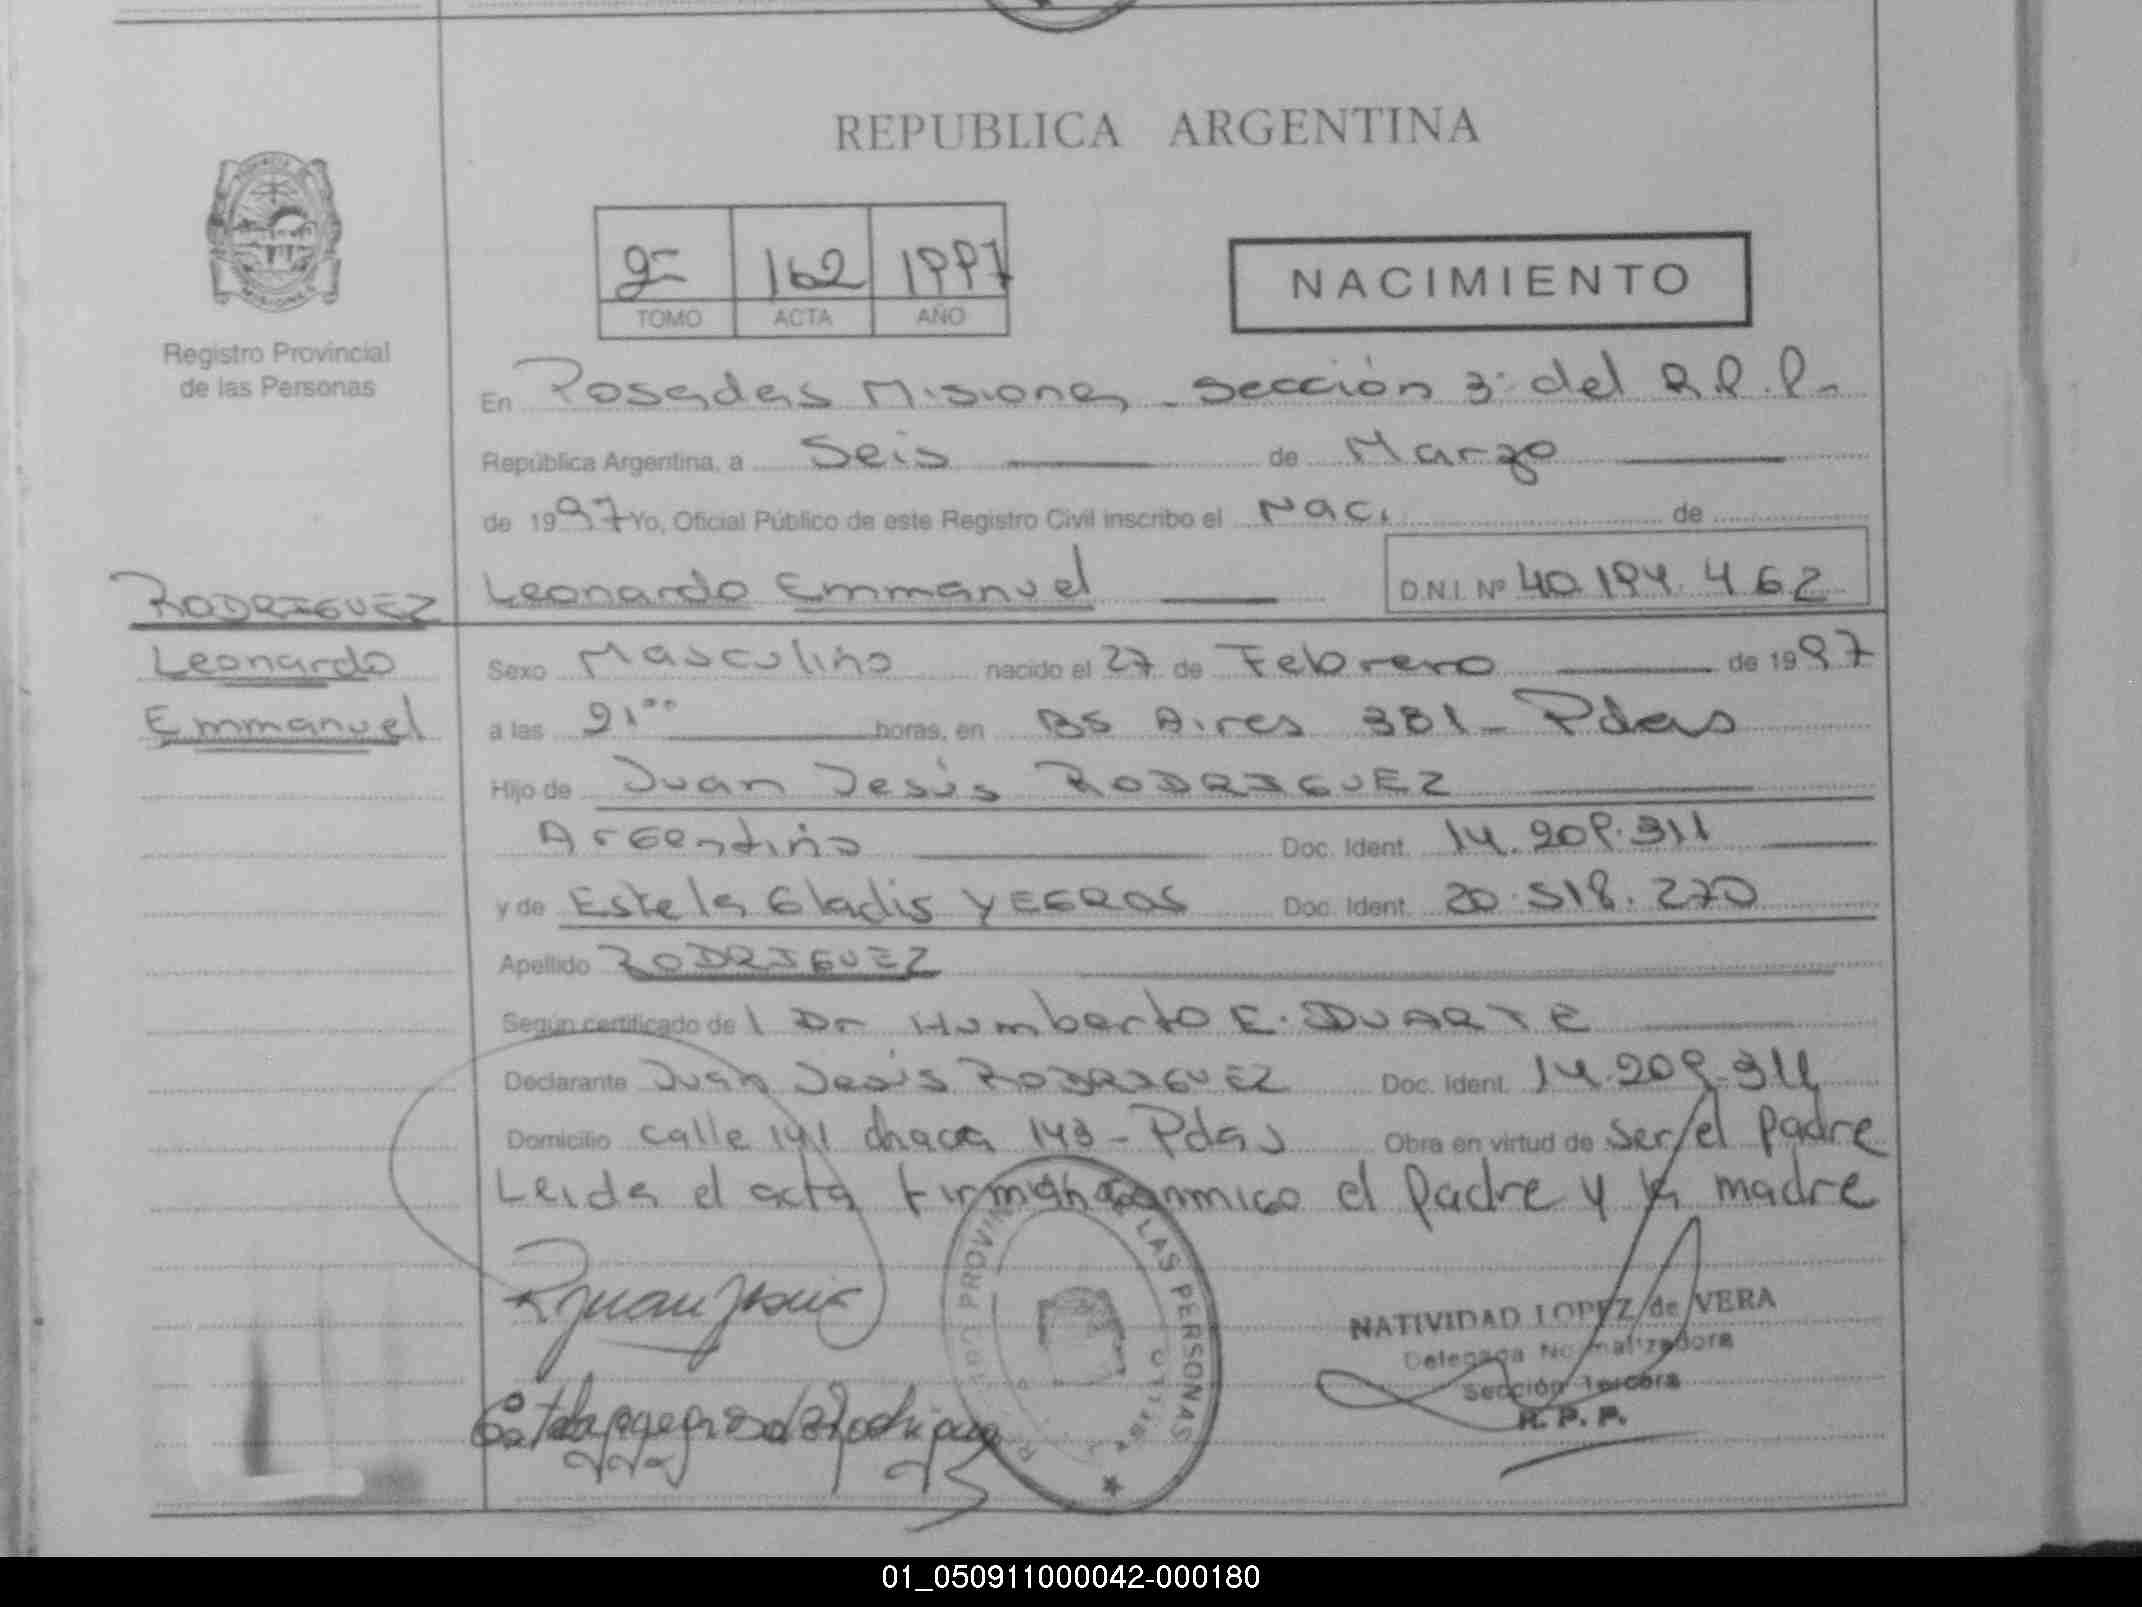 REPUBLICA ARGENTINA
162 1997
TOMO ACTA AÑO
NACIMIENTO
Registro Provincial
de las Personas
En Posadas Misiones - Sección 3ª del R.P.P.
República Argentina, a Seis de Marzo
de 1997 Yo, Oficial Público de este Registro Civil inscribo el Naci. de
RODRIGUEZ
Leonardo
Emmanuel
Leonardo Emmanuel D.N.I. Nº 40.194.462
Sexo Masculino nacido el 27 de Febrero de 1997
a las 21⁰⁰ horas, en Bs Aires 381 - Pdas
Hijo de Juan Jesús RODRIGUEZ
Argentino Doc. Ident. 14.209.311
y de Estela Gladis YEGROS Doc. Ident. 20.518.270
Apellido RODRIGUEZ
Según certificado de l Dr Humberto E. DUARTE
Declarante Juan Jesús RODRIGUEZ Doc. Ident. 14.209.311
Domicilio calle 141 chacra 143 - Pdas Obra en virtud de ser el padre
Leida el acta firman conmigo el padre y la madre
R Juan Jesus
LAS PERSONAS
NATIVIDAD LOPEZ de VERA
Delegada Normalizadora
Sección Tercera
R. P. P.
01_050911000042-000180